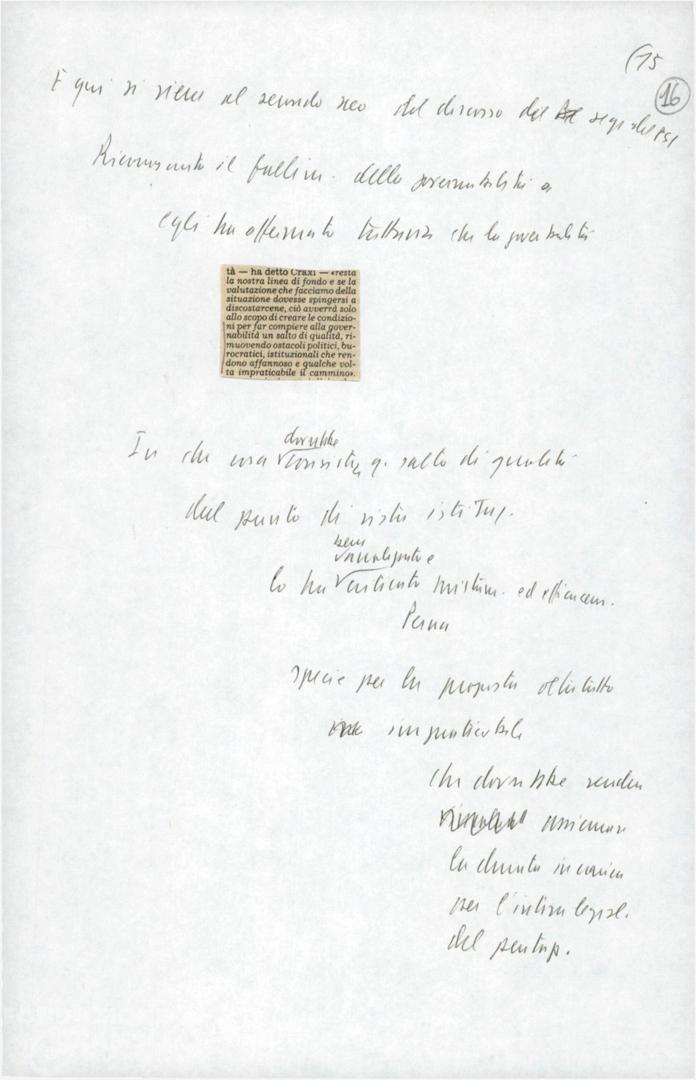 (15
16
E qui si viene al secondo neo del discorso del segr. del PSI
Riconosciuto il fallim. della governabilità
egli ha affermato tuttavia che la governabilità
tà — ha detto Craxi — «resta
la nostra linea di fondo e se la
valutazione che facciamo della
situazione dovesse spingersi a
discostarcene, ciò avverrà solo
allo scopo di creare le condizio-
ni per far compiere alla gover-
nabilità un salto di qualità, ri-
muovendo ostacoli politici, bu-
rocratici, istituzionali che ren-
dono affannoso e qualche vol-
ta impraticabile il cammino».
dovrebbe
In che cosa q. salto di qualità
dal punto di vista istituz.
bene
lo ha criticato ed efficacem.
Perna
specie per la proposta oltretutto
impraticabile
che dovrebbe
assicurare
la durata in carica
per l'intera legisl.
del pentap.